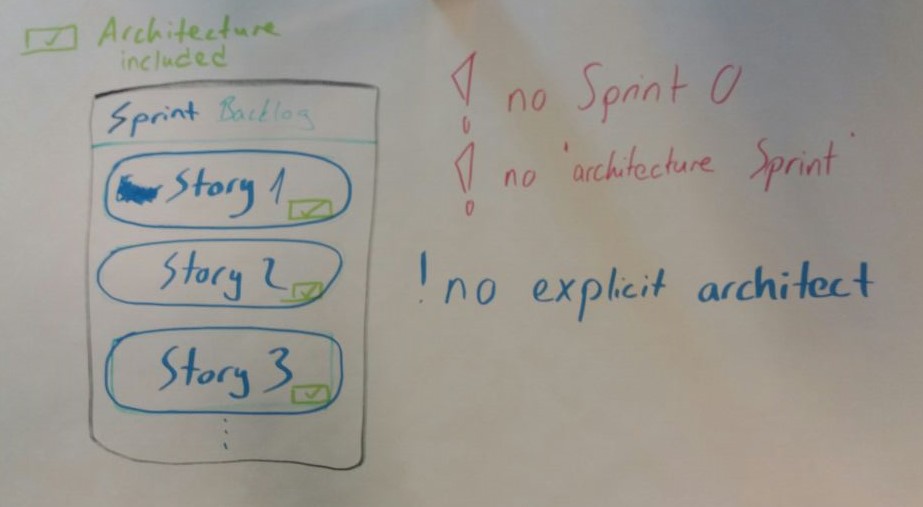 Architecture
included
Sprint Backlog
Story 1
Story 2
Story 3
! no Sprint 0
! no 'architecture Sprint'
! no explicit architect